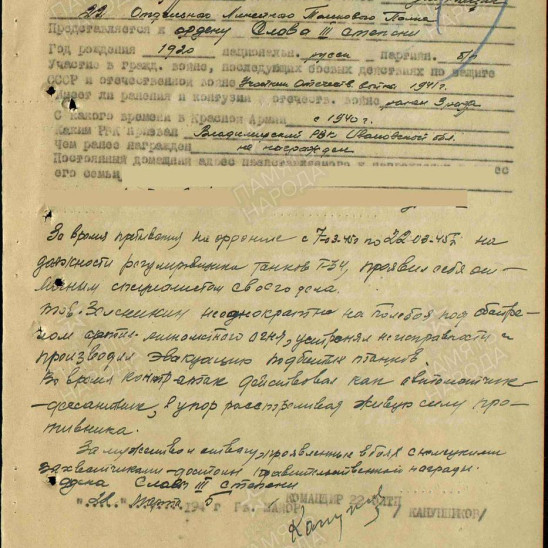 22 Отдельного Линейного Танкового Полка
Представляется к ордену Слава III степени
Год рождения 1920 национален. русск партийн. б/п
Участие в гражд. войне, последующих боевых действиях по защите
СССР и отечественной войне Участник Отечеств. войны 1941 г.
Имеет ли ранения и контузии в отечеств. войне ранен 3 раза
С какого времени в Красной Армии с 1940 г.
Каким РВК призван Владимирский РВК Ивановской обл.
Чем ранее награжден не награжден
Постоянный домашний адрес представляемого к
его семьи
За время пребывания на фронте с 7-03-45 по 22-03-45 г. на
должности регулировщика танков Т-34, проявил себя
специалистом своего дела.
тов. неоднократно на поле боя под
артил. минометного огня, устранял неисправности и
производил эвакуацию подбитых танков.
Во время контратак действовал как автоматчик-
-десантник, в упор расстреливая живую силу про-
тивника.
За мужество и отвагу, проявленные в боях с немецкими
захватчиками - достоин правительственной награды.
ордена Слава III степени
"22" март 1945 г.
КОМАНДИР 22
КАПУШНИКОВ/